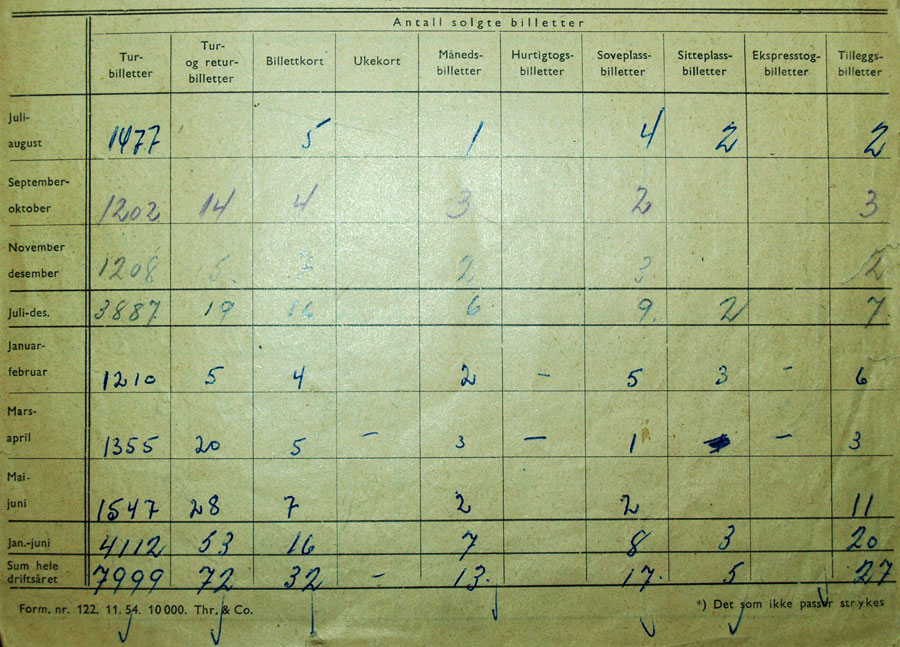 Antall solgte billetter
Tur- billetter Tur- og retur- billetter Billettkort Ukekort Måneds- billetter Hurtigtogs- billetter Soveplass- billetter Sitteplass- billetter Ekspresstog- billetter Tilleggs- billetter
Juli- august 1477 5 1 4 2 2
September- oktober 1202 14 4 3 2 3
November desember 1208 5. 2 3 2
Juli-des. 3887 19 16 6 9. 2 7.
Januar- februar 1210 5 4 2 - 5 3 - 6
Mars- april 1355 20 5 - 3 - 1 - 3
Mai- juni 1547 28 7 2 2 11
Jan.-juni 4112 53 16 7 8 3 20
Sum hele driftsåret 7999 72 32 - 13. 17. 5 27
Form. nr. 122. 11. 54. 10 000. Thr. & Co. *) Det som ikke passer strykes